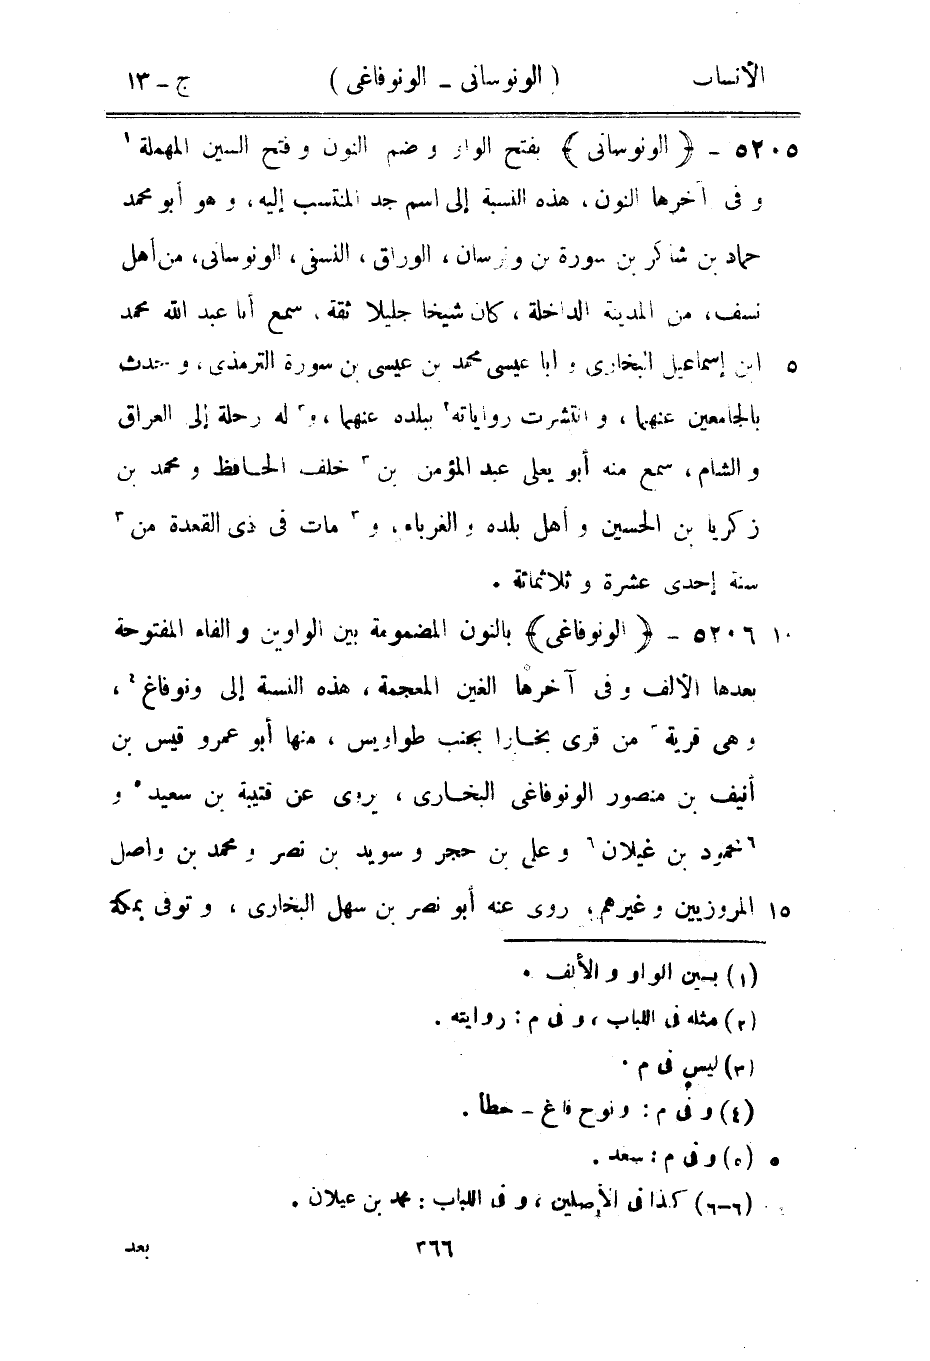 الأنساب ( الونوسانى ـ الونوفاغى ) ج - ١٣
٥٢٠٥ - ﴿ الونوسانى ﴾ بفتح الواو و ضم النون و فتح السين المهملة ١
و فى آخرها النون ، هذه النسبة إلى اسم جد المنتسب إليه ، و هو أبو محمد
حماد بن شاكر بن سورة بن ونوسان ، الوراق ، النسفى ، الونوسانى ، من أهل
نسف ، من المدينة الداخلة ، كان شيخا جليلا ثقة ، سمع أبا عبد الله محمد
٥ ابن إسماعيل البخارى و أبا عيسى محمد بن عيسى بن سورة الترمذى ، و حدث
بالجامعين عنهما ، و انتشرت رواياته ٢ ببلده عنهما ، و ٣ له رحلة إلى العراق
و الشام ، سمع منه أبو يعلى عبد المؤمن بن ٣ خلف الحافظ و محمد بن
زكريا بن الحسين و أهل بلده و الغرباء ، و ٣ مات فى ذى القعدة من ٣
سنة إحدى عشرة و ثلاثمائة .
١٠ ٥٢٠٦ - ﴿ الونوفاغى ﴾ بالنون المضمومة بين الواوين و الفاء المفتوحة
بعدها الألف و فى آخرها الغين المعجمة ، هذه النسبة إلى ونوفاغ ٤ ،
و هى قرية من قرى بخارا بجنب طواويس ، منها أبو عمرو قيس بن
أنيف بن منصور الونوفاغى البخارى ، يروى عن قتيبة بن سعيد ٥ و
٦ محمود بن غيلان ٦ و على بن حجر و سويد بن نصر و محمد بن واصل
١٥ المروزيين و غيرهم ، روى عنه أبو نصر بن سهل البخارى ، و توفى بمكة
(١) بين الواو و الألف .
(٢) مثله فى اللباب ، و فى م : روايته .
(٣) ليس فى م .
(٤) و فى م : ونوح فاغ - خطأ .
(٥) و فى م : سعد .
(٦-٦) كذا فى الأصلين ، و فى اللباب : محمد بن عيلان .
٣٦٦ بعد